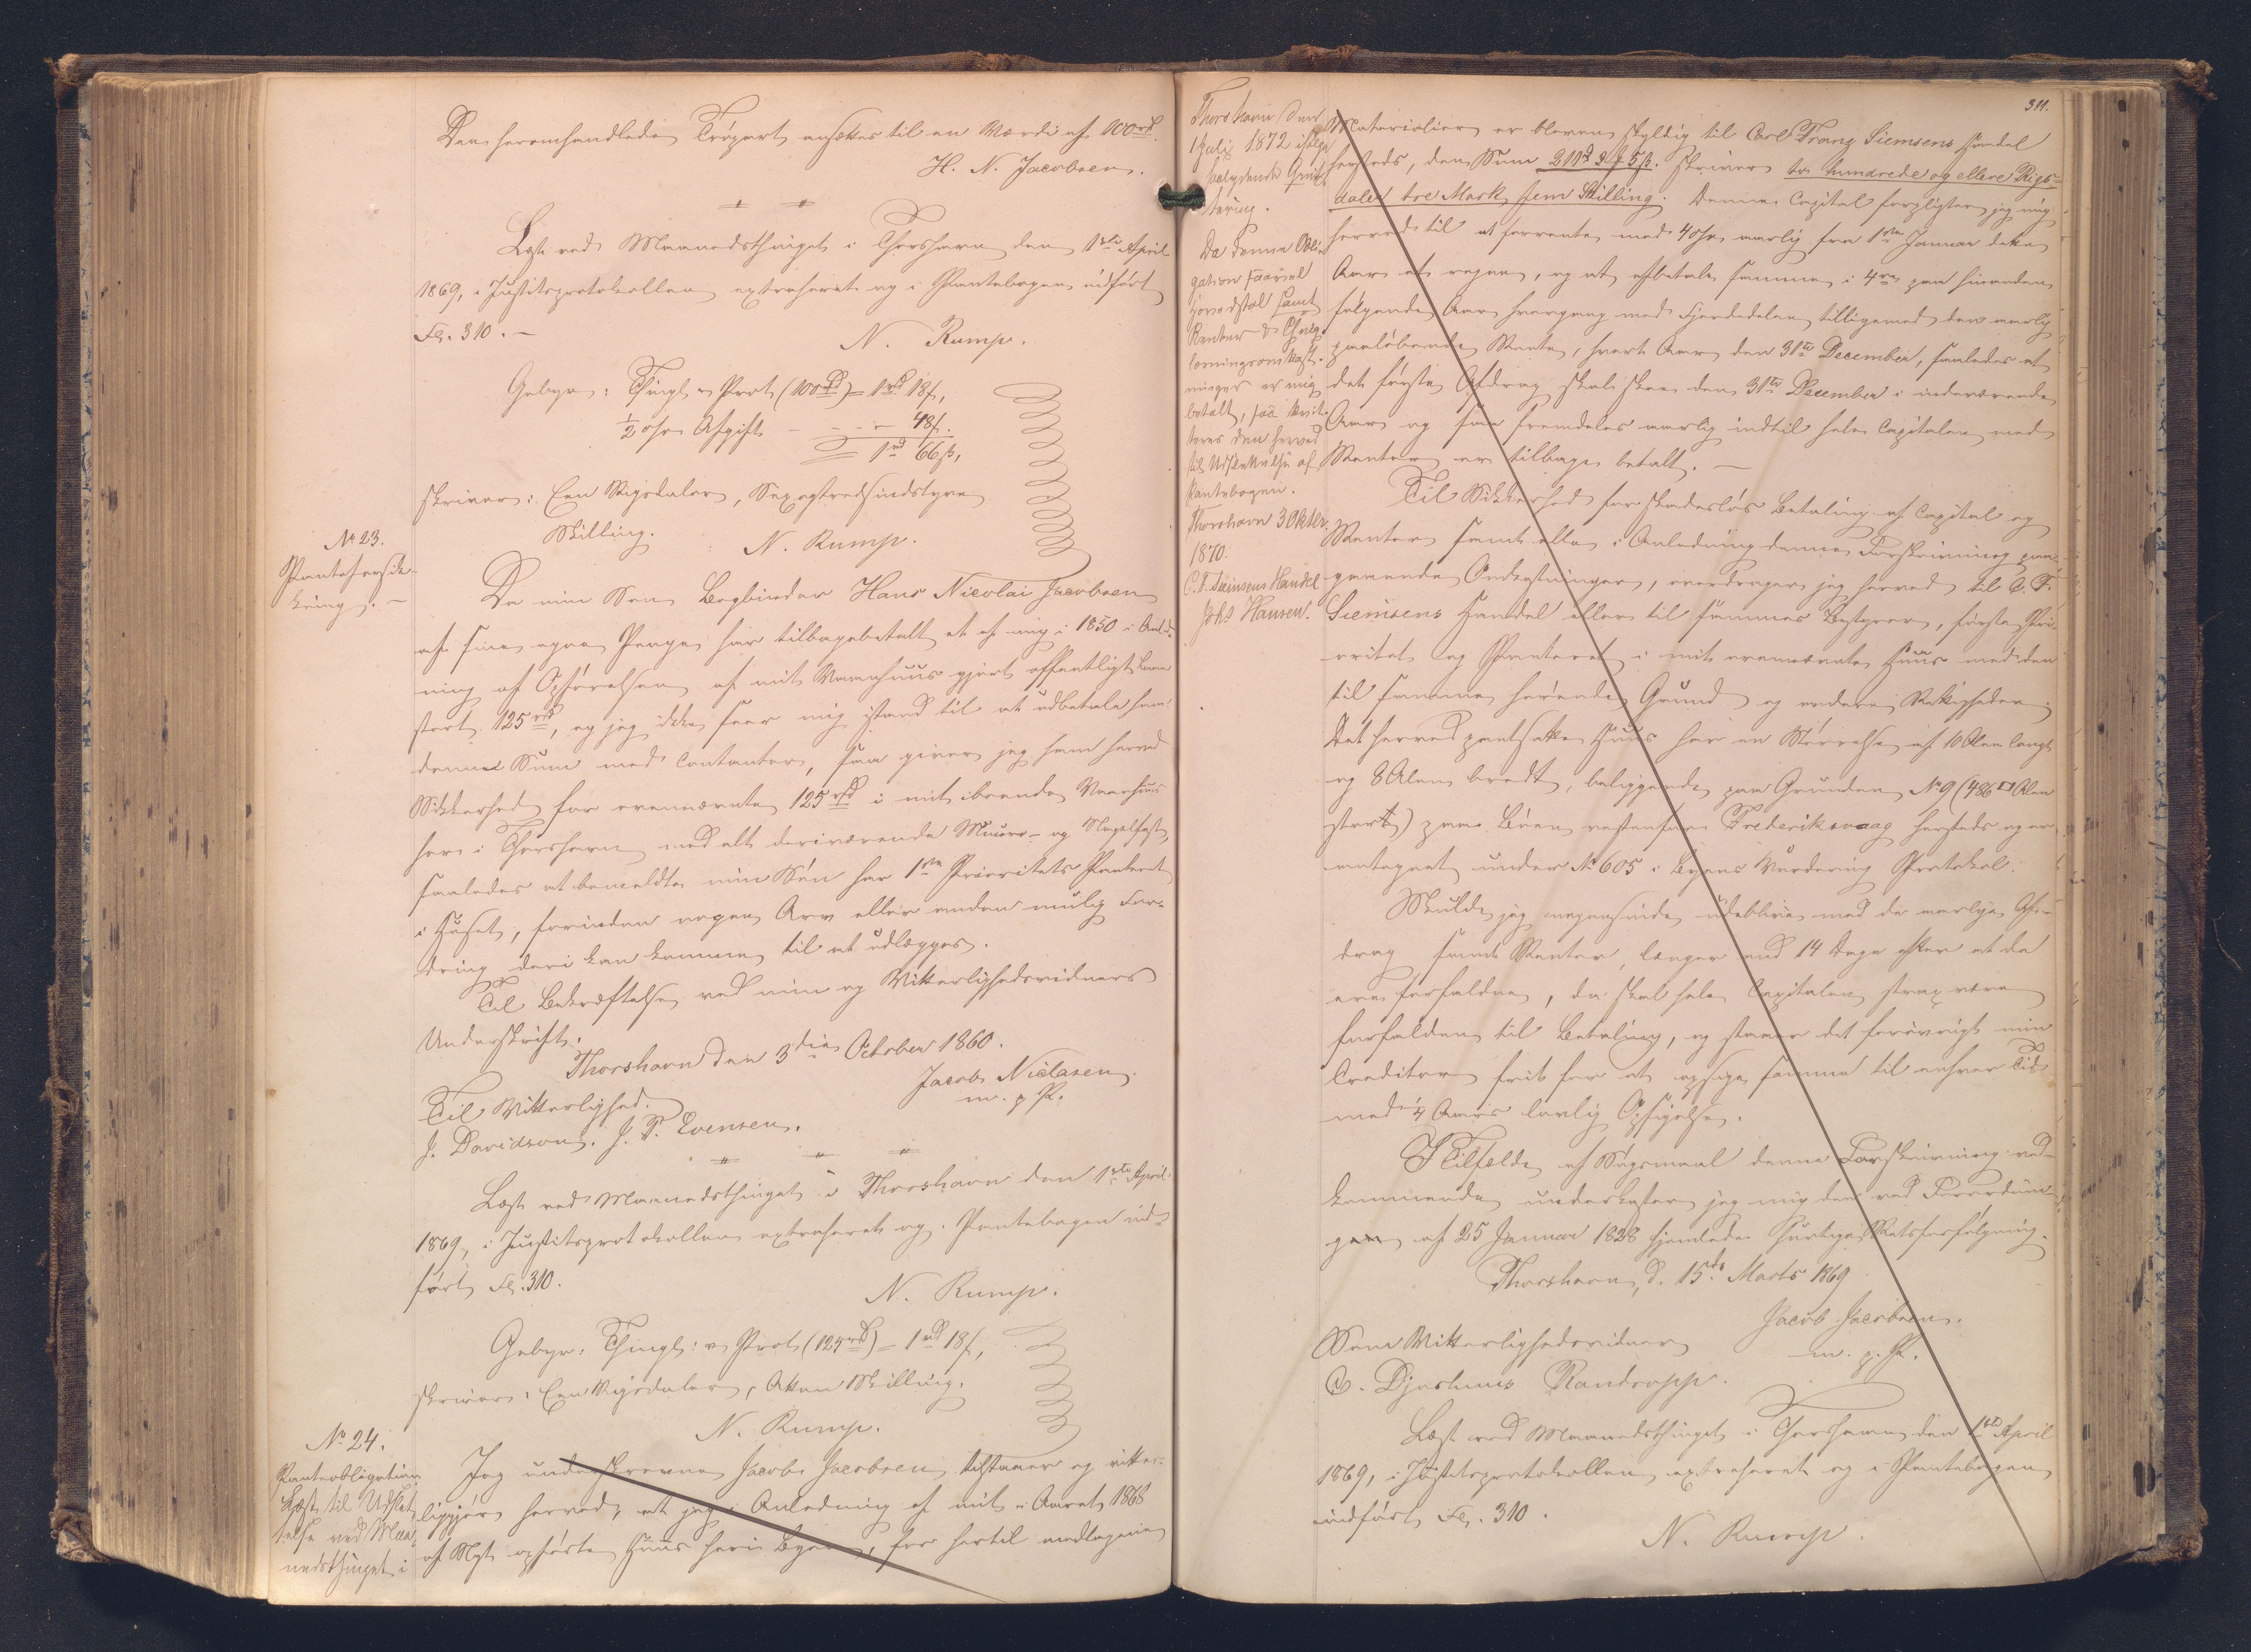 Den heromhandlede Tröpart ansættes til en Værdi af 100 rd.
H. N. Jacobsen.
Læst ved Maanedsthinget i Thorshavn den 1ste April
1869, i Justitsprotokollen extraheret og i Pantebogen indført
Fol. 310. –
N. Rump.
Gebyr: Thingl. & Prot (100 rd) = 1 rd 18 ß,
½ pCt Afgift - - - - 48 ß.
1 rd 66 ß,
skriver: Een Rigsdaler, Sexogtredsindstyve
Skilling.
N. Rump.
No 23.
Pantforsik-
kring. –
Da min Søn Bogbinder Hans Nicolai Jacobsen
af sine egne Penge har tilbagebetalt et af mig i 1850 i Anled-
ning af Opførelsen af mit Vaanhuus gjort offentligt Laan
stort 125 rd, og jeg ikke seer mig istand til at udbetale ham
denne Sum med Contanter, saa giver jeg ham herved
Sikkerhed for ovennævnte 125 rd i mit iboende Vaanhuus
her i Thorshavn med alt deriværende Muur- og Nagelfast,
saaledes at bemeldte min Søn har 1ste Prioritets Panteret
i Huset, forinden nogen Arv eller anden mulig For-
dring deri kan komme til at udlægges.
Til Bekræftelse ved min og Vitterlighedsvidners
Underskrift.
Thorshavn den 3die October 1860.
Jacob Nielasen
m. p. P.
Til Vitterlighed.
J. Davidson. J. P. Evensen.
Læst ved Maanedsthinget i Thorshavn den 1ste April
1869, i Justitsprotokollen extraheret og i Pantebogen ind-
ført Fol. 310.
N. Rump.
Gebyr: Thingl: & Prot (125 rd) = 1 rd 18 ß,
skriver: Een Rigsdaler, Atten Skilling.
N. Rump.
No 24.
Panteobligation
Læst til Udslet-
telse ved Maa-
nedsthinget i
Jeg underskrevne Jacob Jacobsen tilstaaer og vitter-
liggjør herved, at jeg i Anledning af mit i Aaret 1868
af Nyt opførte Huus her i Byen, for hertil modtagne
311.
Thorshavn den
1 Juli 1872 ifølge
Qvit-
tering.
Da denne Obli-
gation saavel
Hovedstol samt
Renter &
er mig
betalt, saa kvit-
teres den herved
til Udslettelse af
Pantebogen.
Thorshavn 3 Oktbr.
1870.
C. F. Siemsens Handel
Johs Hansen.
Materialier er bleven skyldig til Carl Franz Siemsens Handel
hersteds, den Sum 211 rd 3 ₰ 5 ß. skriver to hundrede og elleve Rigs-
daler tre Mark fem Skilling. Denne Capital forpligter jeg mig
herved til at forrente med 4 pCt aarlig fra 1ste Januar dette
Aar at regne, og at afbetale samme i 4re paa hinanden
følgende Aar hvergang med Fjerdedelen tilligemed den aarlig
paaløbende Rente, hvert Aar den 31te December, saaledes at
det første Afdrag skal skee den 31te December i indeværende
Aar og saa fremdeles aarlig indtil hele Capitalen med
Renter er tilbage betalt. –
Til Sikkerhed for skadesløs Betaling af Capital og
Renter samt alle i Anledning denne Forskrivning paa-
gaaende Omkostninger, overdrager jeg herved til C. F.
Siemsens Handel eller til sammes Bestyrer, første Pri-
oritet og Panteret i mit ovennævnte Huus med den
til samme hørende Grund og andre Rettigheder.
Det herved pantsatte Huus har en Størrelse af 10 Alen langt
og 8 Alen bredt, beliggende paa Grunden No 9 (486 □ Alen
stort) paa Bøen vestenfor Frederiksvaag hersteds og er
antegnet under No 605 i Byens Vurdering Protokol.
Skulde jeg nogensinde udeblive med de aarlige Af-
drag samt Renter, længer end 14 Dage efter at de
ere forfaldne, da skal hele Capitalen strax være
forfalden til Betaling, og staaer det forøvrigt min
Creditor frit for at opsige samme til enhver Tid
med ¼ Aars lovlig Opsigelse.
I Tilfælde af Søgsmaal denne Forskrivning ved-
kommende underkaster jeg mig den ved Forordnin-
gen af 25 Januar 1828 hjemlede hurtige Retsforfølgning.
Thorshavn, d. 15de Marts 1869
Jacob Jacobsen.
m. p. P.
Som Vitterlighedsvidner
C. Djurhuus Randropp.
Læst ved Maanedsthinget i Thorshavn den 1ste April
1869, i Justitsprotokollen extraheret og i Pantebogen
indført Fol. 310.
N. Rump.